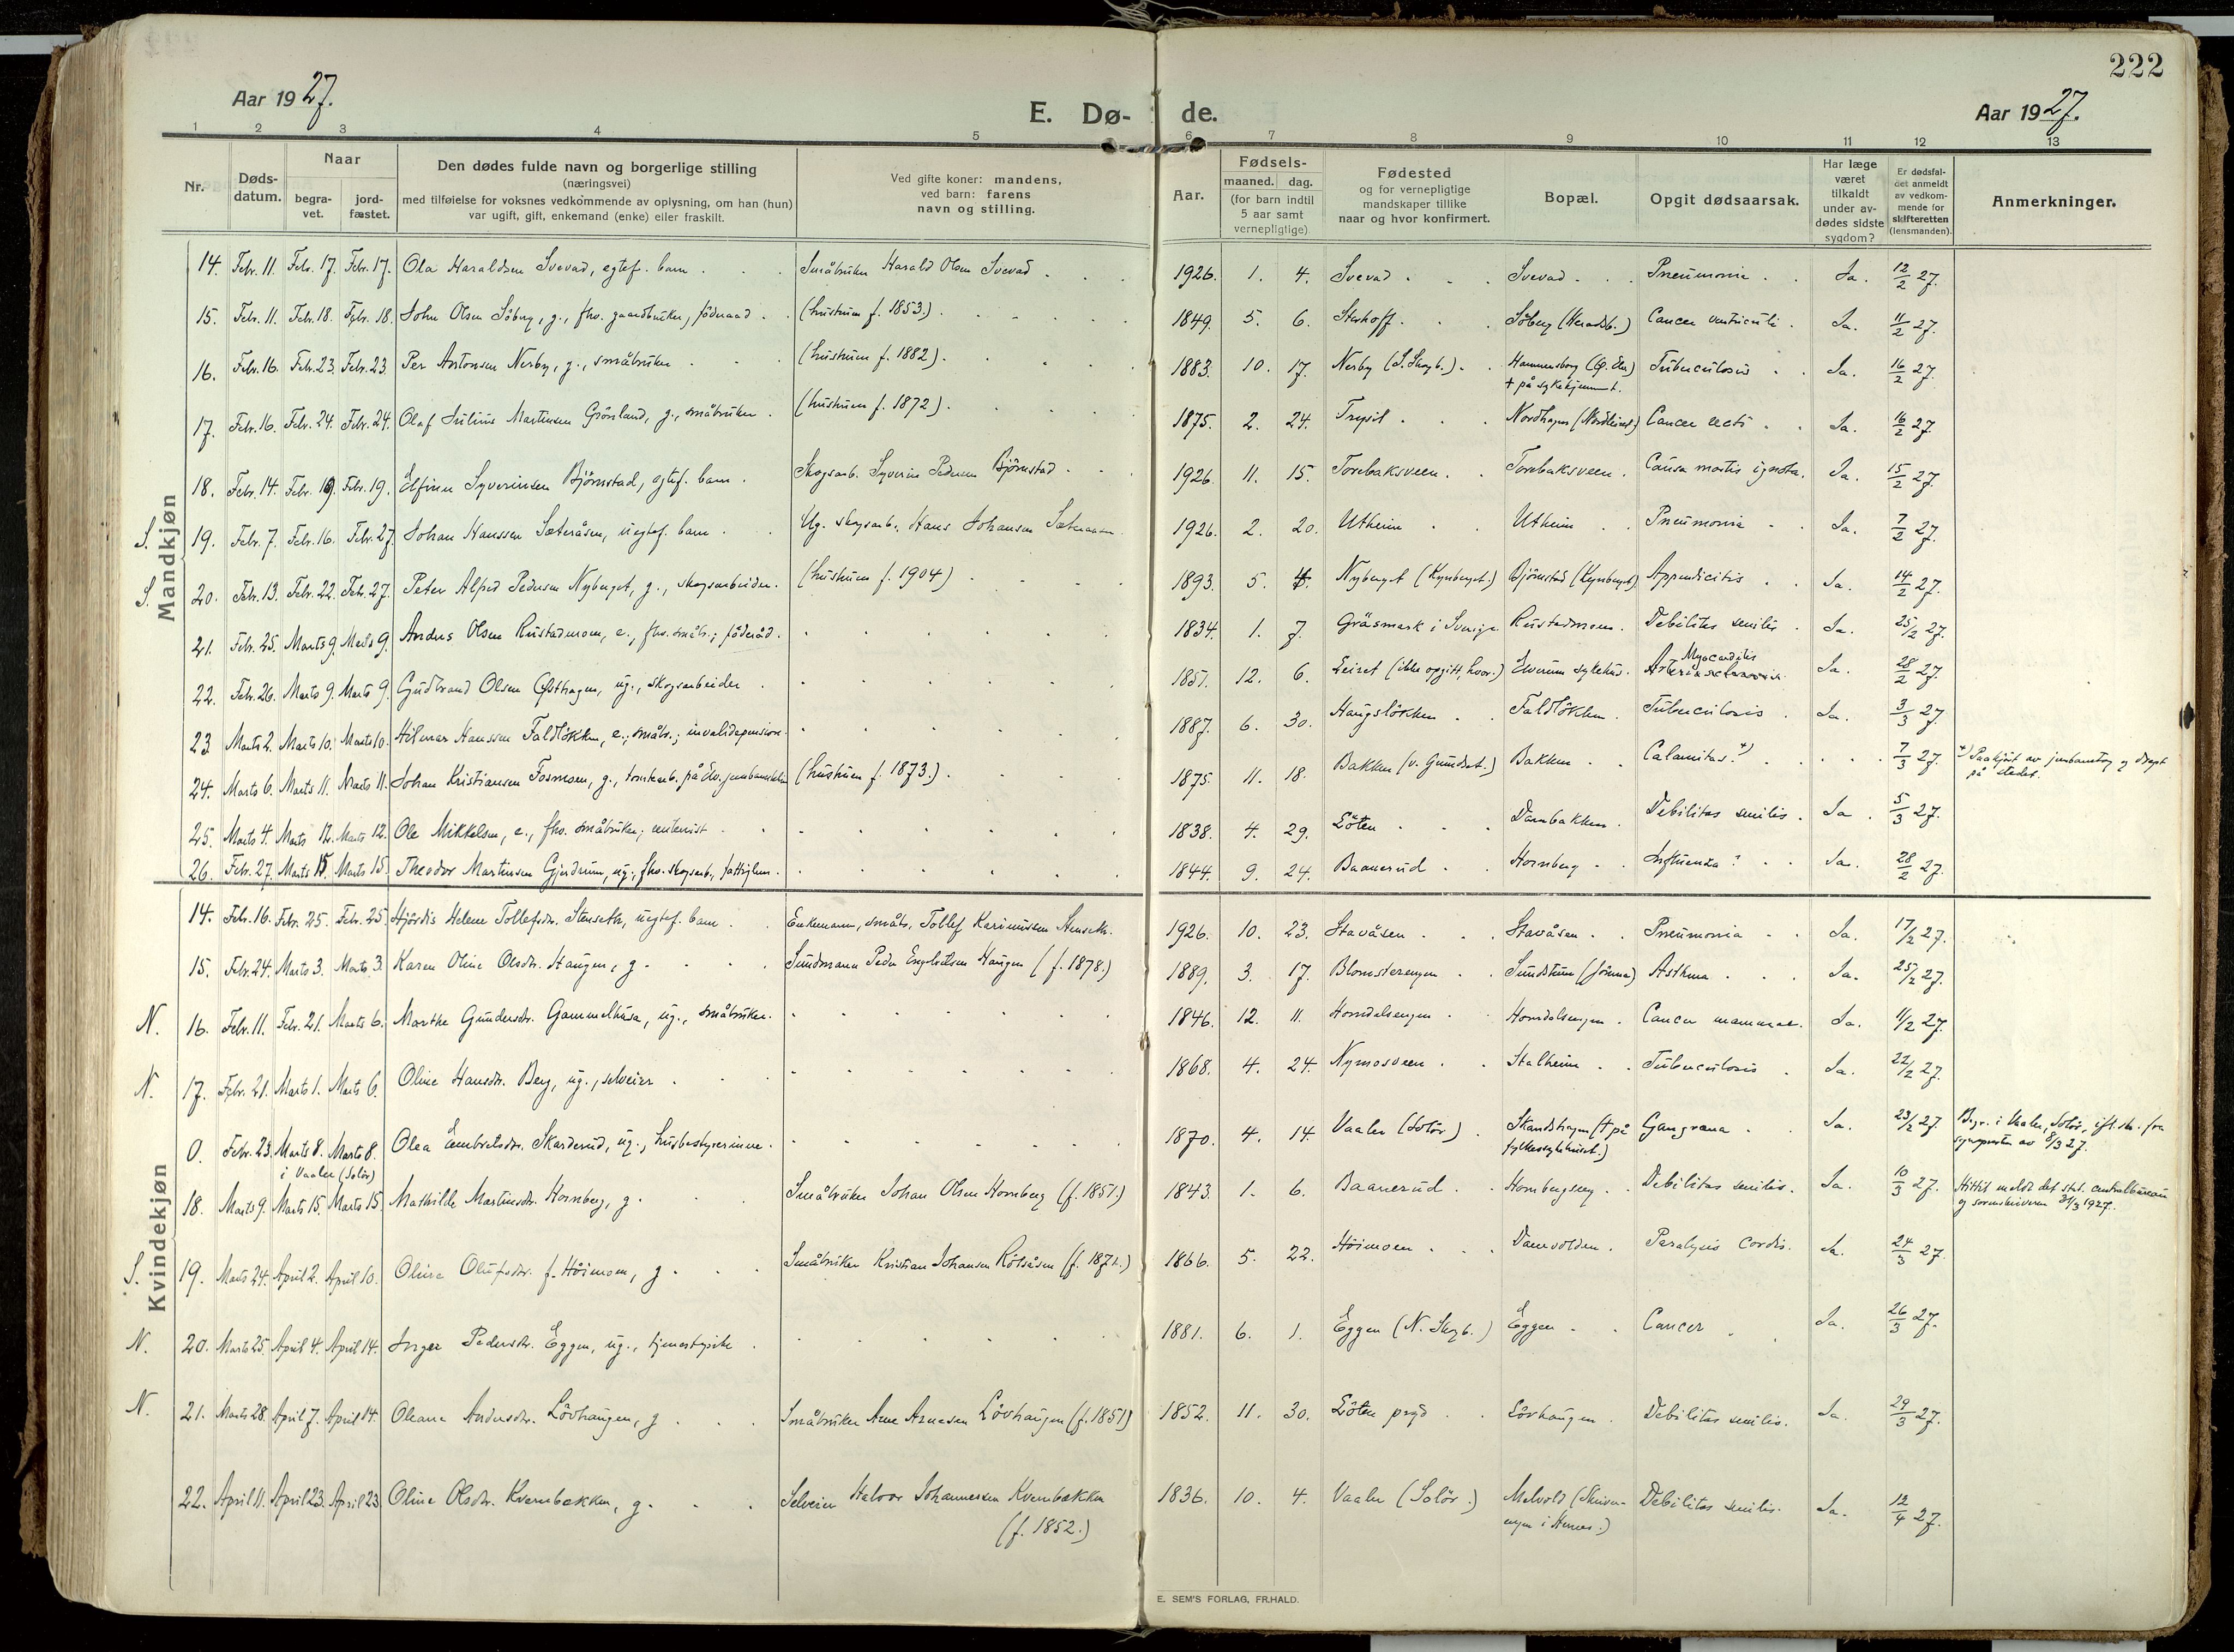 222
Aar 1927.
E. Dø- de.
Aar 1927.
1 2 3 4 5 6 7 8 9 10 11 12 13
Nr.
Døds-
datum.
Naar
begra-
vet.
jord-
fæstet.
Den dødes fulde navn og borgerlige stilling
(næringsvei)
med tilføielse for voksnes vedkommende av oplysning, om han (hun)
var ugift, gift, enkemand (enke) eller fraskilt.
Ved gifte koner: mandens,
ved barn: farens
navn og stilling.
Aar.
Fødsels-
maaned. dag.
(for barn indtil
5 aar samt
vernepligtige)
Fødested
og for vernepligtige
mandskaper tillike
naar og hvor konfirmert.
Bopæl.
Opgit dødsaarsak.
Har læge
været
tilkaldt
under av-
dødes sidste
sygdom?
Er dødsfal-
det anmeldt
av vedkom-
mende for
skifteretten
(lensmanden).
Anmerkninger.
Mandkjøn
14. Febr. 11. Febr. 17. Febr. 17. Ola Haraldsen Svevad, egtef. barn. Småbruker Harald Olsen Svevad. 1926. 1. 4. Svevad. Svevad. Pneumonia. Ja. 12/2 27.
15. Febr. 11. Febr. 18. Febr. 18. John Olsen Söberg, g., fhv. gaardbruker, föderaad. (hustruen f. 1853.) 1849. 5. 6. Söberg (Heradsb.) Cancer ventriculi. Ja. 11/2 27.
16. Febr. 16. Febr. 23. Febr. 23. Per Antonsen Nerby, g., småbruker. (hustruen f. 1882). 1883. 10. 17. Nerby (S. Skogb.). Hammersborg Tuberculosis. Ja. 16/2 27.
+ på sykehjemmet.
17. Febr. 16. Febr. 24. Febr. 24. Olaf Julius Martinsen Grönland, g., småbruker. (hustruen f. 1872). 1875. 2. 24. Trysil. Nordhagen Cancer recti. Ja. 16/2 27.
18. Febr. 14. Febr. 19. Febr. 19. Elfinn Syverinsen Björnstad, egtef. barn. Skogsarb. Syverin Pedersen Björnstad. 1926. 11. 15. Torebaksveen. Torebaksveen. Causa mortis ignota. Ja. 15/2 27.
S. 19. Febr. 7. Febr. 16. Febr. 27. Johan Hanssen Sæteråsen, uegtef. barn. Ug. skogsarb. Hans Johansen Sæteraasen. 1926. 2. 20. Utheim Utheim Pneumonia. Ja. 7/2 27.
S. 20. Febr. 13. Febr. 22. Febr. 27. Peter Alfred Pedersen Nyberget, g., skogsarbeider. (hustruen f. 1904) 1893. 5. Nyberget (Kynberget.) Björnstad (Kynberget) Appendicitis. Ja. 14/2 27.
21. Febr. 25. Marts 9. Marts 9. Anders Olsen Rustadmoen, e., fhv. småbr.; föderåd. 1834. 1. 7. Gräsmark i Sverige Rustadmoen. Debilitas senilis. Ja. 25/2 27.
22. Febr. 26. Marts 9. Marts 9. Gudbrand Olsen Østhagen, ug., skogsarbeider. 1851. 12. 6. Leiret (ikke opgitt, hvor.) Elverum sykehus. Myocarditis Ja. 28/2 27.
23 Marts 2. Marts 10. Marts 10. Hilmar Hanssen Faldlökken, e.; småbr.; invalidepension. 1887. 6. 30. Haugslökken Faldlökken. Tuberculosis. Ja. 3/3 27.
24. Marts 6. Marts 11. Marts 11. Johan Kristiansen Fosmoen, g., (hustruen f. 1873.) 1875. 11. 18. Bakken (v. Grundset.) Bakken. Calamitas. *) 7/3 27. *) Paakjört av jernbanetog og dræpt
på stedet.
25. Marts 4. Marts 12. Marts 12. Ole Mikkelsen, e., fhv. småbruker; rentenist. 1838. 4. 29. Löten Dambakken. Debilitas senilis. Ja. 5/3 27.
26. Febr. 27. Marts 15. Marts 15. Theodor Martinsen Gjerdrum, ug., fhv. skogsarb., fattiglem. 1844. 9. 24. Baanerud Hornberg Influenza? Ja. 28/2 27.
Kvindekjøn
14. Febr. 16. Febr. 25. Febr. 25. Hjördis Helene Tollefsdr. Stenseth, uegtef. barn. Enkemann, småbr. Tollef Karinussen Stenseth. 1926. 10. 23. Stavåsen. Stavåsen. Pneumonia Ja. 17/2 27.
15. Febr. 24. Marts 3. Marts 3. Karen Oline Olsdr. Haugen, g. Sundmann Peder Engebretsen Haugen (f. 1878.) 1889. 3. 17. Blomsterengen. Sundstuen (Jömna) Asthma. Ja. 25/2 27.
N. 16. Febr. 11. Febr. 21. Marts 6. Marthe Gundersdr. Gammelhusa, ug., småbruker. 1846. 12. 11. Horndalsengen. Horndalsengen. Cancer mammae. Ja. 11/2 27.
N. 17. Febr. 21. Marts 1. Marts 6. Oline Hansdr. Berg, ug., selveier. 1868. 4. 24. Nymosveen. Stalheim. Tuberculosis. Ja. 22/2 27.
0. Febr. 23. Marts 8. Marts 8. Olea Embretsdr. Skarderud, ug., husbestyrerinne. 1870. 4. 14. Vaaler (Solör) Skandshagen († på Gangræna. Ja. 23/2 27. Begr. i Vaaler, Solör, ifl. skr. fra
i Vaaler (Solör) fylkessykehuset.) sognepresten av 8/3 27.
18. Marts 9. Marts 15. Marts 15. Mathilde Martinsdr. Hornberg, g. Småbruker Johan Olsen Hornberg (f. 1851.) 1843. 1. 6. Baanerud. Hornbergseg. Debilitas senilis. Ja. 10/3 27. Hittil meldt det stat. centralbureau
og sorenskriveren 31/3 1927.
S. 19. Marts 24. April 2. April 10. Oline Olufsdr. f. Höimoen, g. Småbruker Kristian Johansen Rötåsen (f. 1872.) 1866. 5. 22. Höimoen. Damvolden. Paralysis cordis. Ja. 24/3 27.
N. 20. Marts 25. April 4. April 14. Inger Pedersdr. Eggen, ug., tjenestepike. 1881. 6. 1. Eggen (N. Skogb.) Eggen Cancer Ja. 26/3 27.
N. 21. Marts 28. April 7. April 14. Oleane Andersdr. Lövhaugen, g. Småbruker Arne Arnesen Lövhaugen (f. 1851) 1852. 11. 30. Löten prgd. Lövhaugen. Debilitas senilis. Ja. 29/3 27.
22. April 11. April 23. April 23. Oline Olsdr. Kvernbækken, g. Selveier Halvor Johannessen Kvernbækken 1836. 10. 4. Vaaler (Solör.) Melvold Debilitas senilis. Ja. 12/4 27.
(f. 1852.)
E. SEM'S FORLAG, FR.HALD.